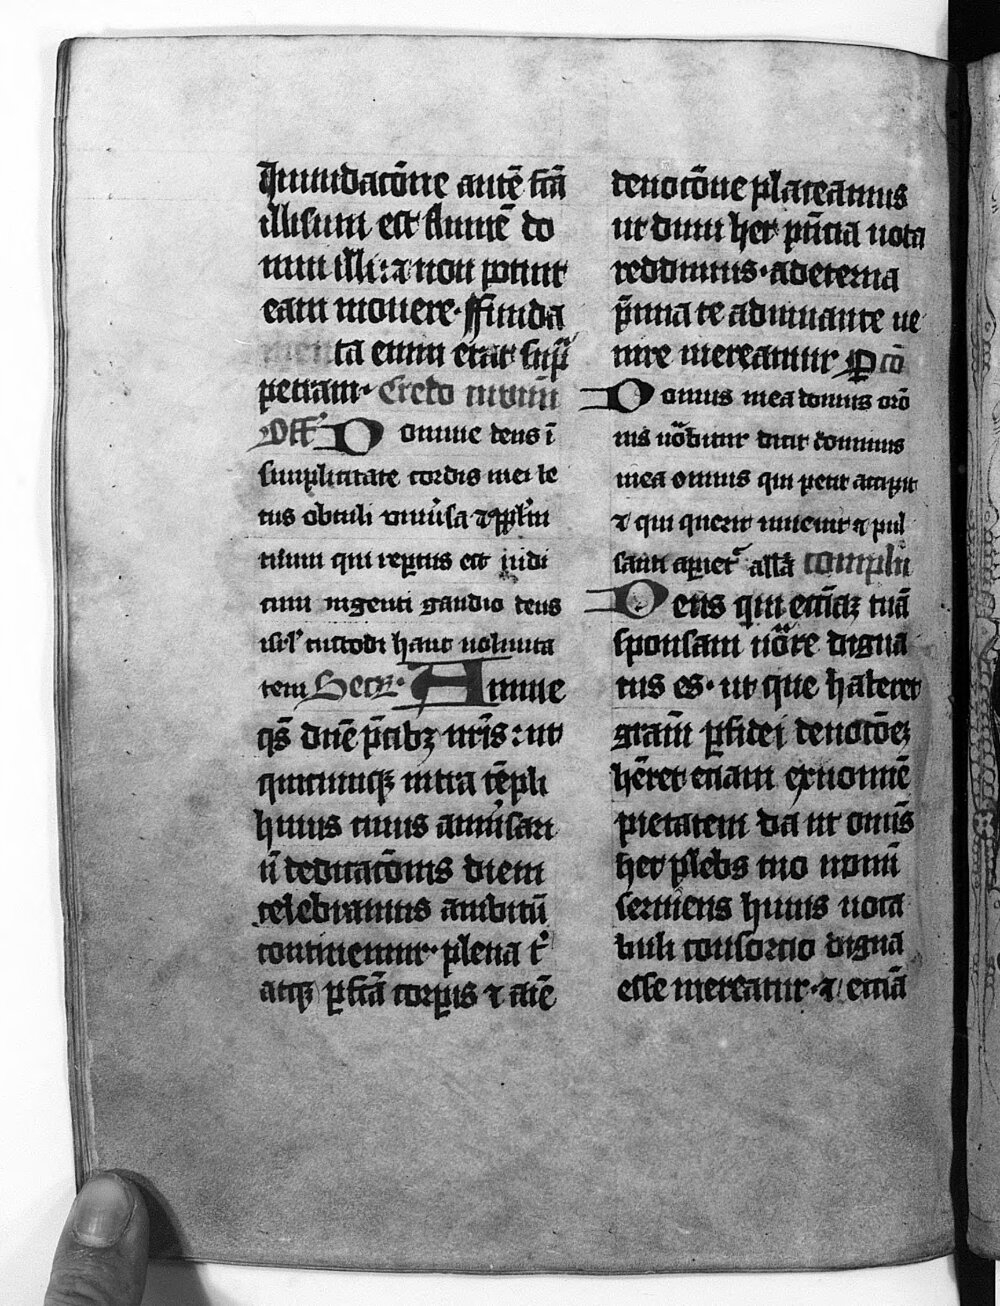 Inundacōne autē fcā
illisum est flumē do
mui illi: ⁊ non potuit
eam mouere· ffunda
menta enim erat sup̄
petram· Credo in vnū
Off Domine deus ī
simplicitate cordis mei le
tus obtuli vniūsa ⁊ pplm̄
tuum qui reptus est vidi
cum ingenti gaudio deus
isrl' custodi hanc volunta
tem Secr· Annue
qs̄ dn̄e p̄cibꝫ nr̄is: ut
quicumqꝫ intra tēpli
huius cuius anniu̓sari
ū dedicacōnis diem
celebramus ambitū
continemur· plena t'
atqꝫ pfcā corpis ⁊ aīe
deuocōne placeamus
ut dum hec pn̄cia uota
reddimus· ad eterna
p̄mia te adiuuante ue
nire mereamur Pcō
Domus mea domus orō
nis uōbitur dicit dominus
mea omnis qui petit accipit
⁊ qui querit inuenit ⁊ pul
santi apiet' allā complēn
Deus qui ecciaꝫ tuā
sponsam uōre digna
tus es· ut que haberet
gram̄ p fidei deuocōeꝫ
hēret etiam ex nomīe
pietatem da ut omīs
hec plebs tuo nomī
seruiens huius uoca
buli consorcio digna
esse mereatur· ⁊ eccīa